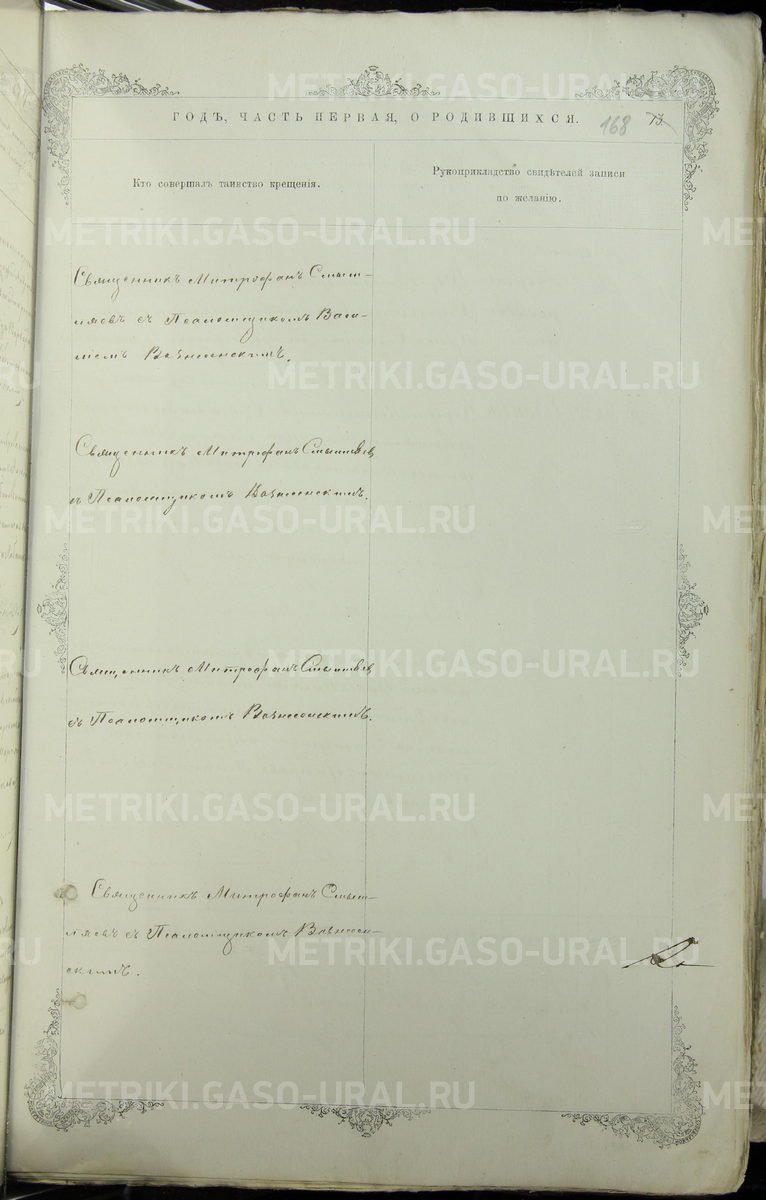 ГОДЪ, ЧАСТЬ ПЕРВАЯ, О РОДИВШИХСЯ.
168
13
Кто совершалъ таинство крещенія.
Рукоприкладство свидѣтелей записи
по желанію.
Священникъ Митрофанъ Смыш-
ляевъ съ Псаломщикомъ Васи-
ліемъ Вознесенскимъ.
Священникъ Митрофанъ Смышляевъ
съ Псаломщикомъ Вознесенскимъ.
Священникъ Митрофанъ Смышляевъ
съ Псаломщикомъ Вознесенскимъ.
Священникъ Митрофанъ Смыш-
ляевъ съ Псаломщикомъ Вознесен-
скимъ.
METRIKI.GASO-URAL.RU